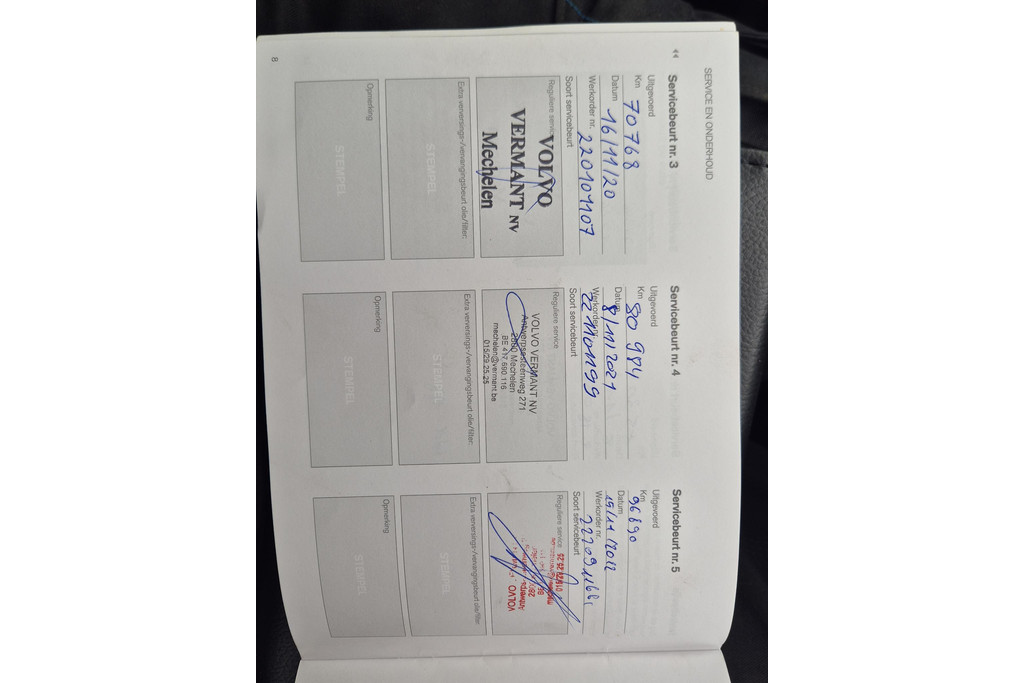 SERVICE EN ONDERHOUD
◄◄
Servicebeurt nr. 3
Uitgevoerd
Km 70768
Datum 16/11/20
Werkorder nr. 220101107
Soort servicebeurt
Reguliere service
VOLVO
VERMANT NV
Mechelen
Extra verversings-/vervangingsbeurt olie/filter:
STEMPEL
Opmerking
STEMPEL
Servicebeurt nr. 4
Uitgevoerd
Km 80 984
Datum 8/11/2021
Werkorder nr.
Soort servicebeurt
Reguliere service
VOLVO VERMANT NV
Antwerpsesteenweg 271
2800 Mechelen
BE 417.690.116
mechelen@vermant.be
015/29.25.25
Extra verversings-/vervangingsbeurt olie/filter:
STEMPEL
Opmerking
STEMPEL
Servicebeurt nr. 5
Uitgevoerd
Km 96890
Datum
Werkorder nr.
Soort servicebeurt
Reguliere service
VOLVO
Antwerps
Extra verversings-/vervangingsbeurt olie/filter:
STEMPEL
Opmerking
STEMPEL
8